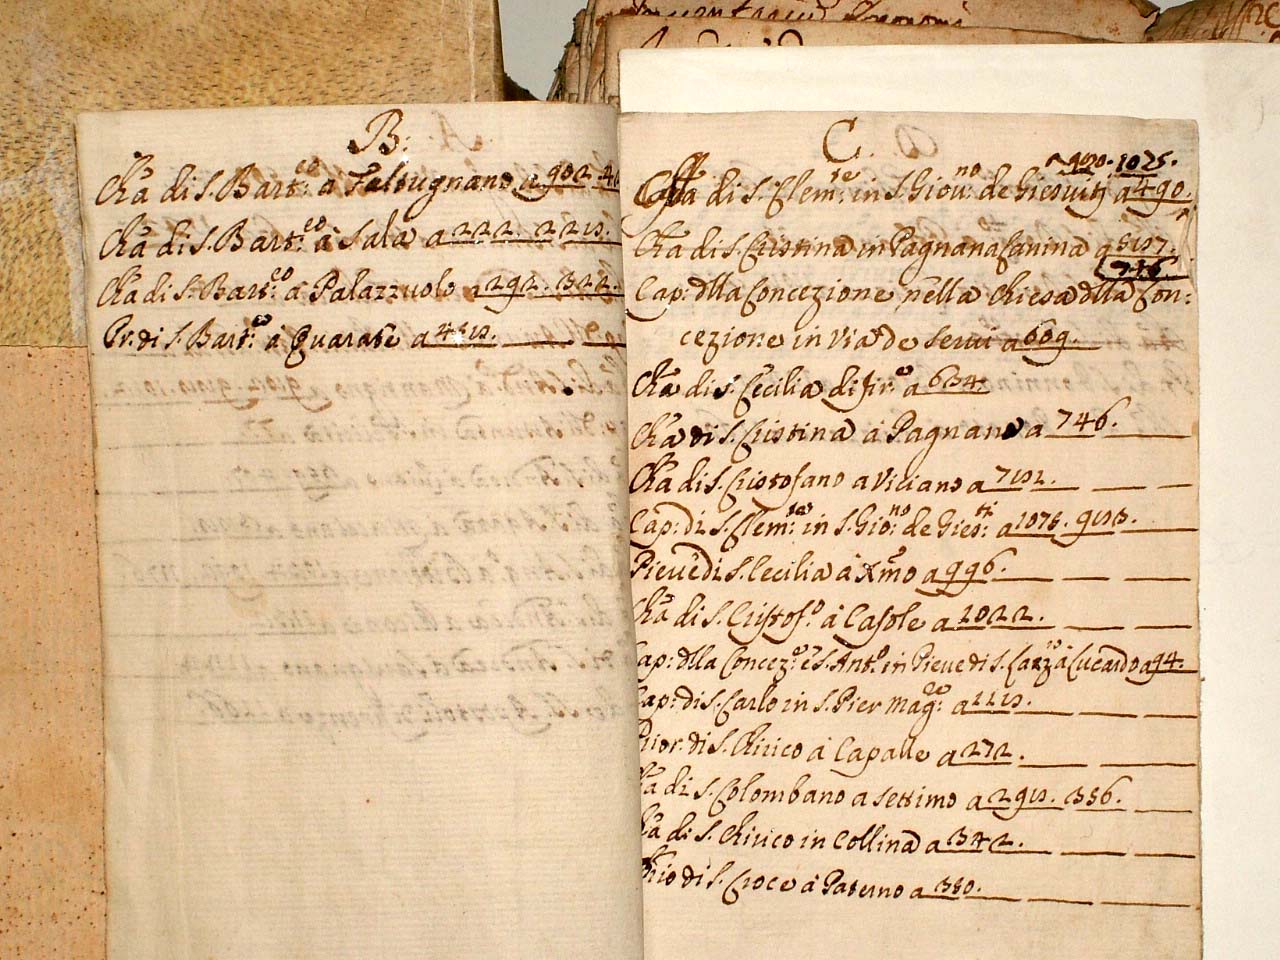 B:
Chã di S. Bart:eo à Faltugnano a 902.
Chã di S. Bart:eo à Sala a 222.
Chã di S. Bart:eo à Palazzuolo a 292. 322.
Pr. di S. Bart:eo à Quarate a
C.
1075.
di S. Clem:te in S. Giou:no de Giesuiti a 490.
Chã di S. Cristina in Pagnana Canina a
746.
Cap: dlla Concezione nella Chiesa dlla Con:
cezione in Via de Serui a 609.
Chã di S. Cecilia di fir:e a 634.
Chã di S. Cristina à Pagnano a 746.
Chã di S. Cristofano a Viciano a
Cap: di S. Clem:te in S. Gio:no de Gies:ti a 1075.
Pieue di S. Cecilia à Xmo a 996.
Chã di S. Cristof.o à Casole a 1022.
Cap: dlla Concez:e e S. Ant:o in Pieue di S. Lazz:o à Lucardo a 94.
Cap: di S. Carlo in S. Pier Mag:re a
Prior: di S. Chirico à Capalle a 272.
Chã di S. Colombano a Settimo a 356.
Chã di S. Chirico in Collina a 342.
di S. Croce à Paterno a 380.